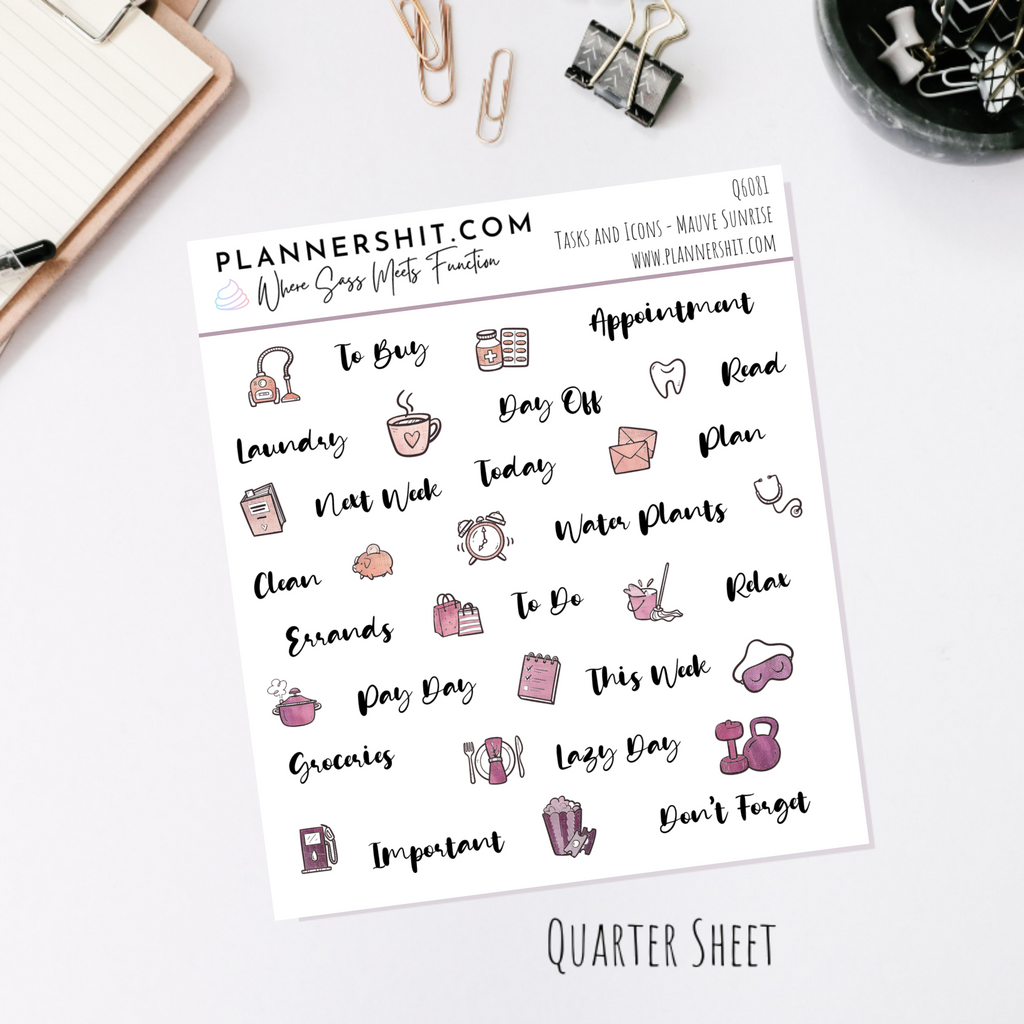 PLANNERSHIT.COM
Where Sass Meets Function
Q6081
Tasks and Icons - Mauve Sunrise
www.plannershit.com
To Buy
Appointment
Read
Laundry
Day Off
Plan
Next Week
Today
Water Plants
Clean
Relax
Errands
To Do
Pay Day
This Week
Groceries
Lazy Day
Important
Don't Forget
Quarter Sheet